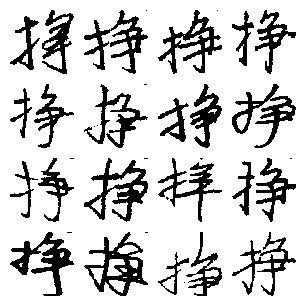 挣挣挣挣
挣挣挣挣
挣挣挣挣
挣挣挣挣